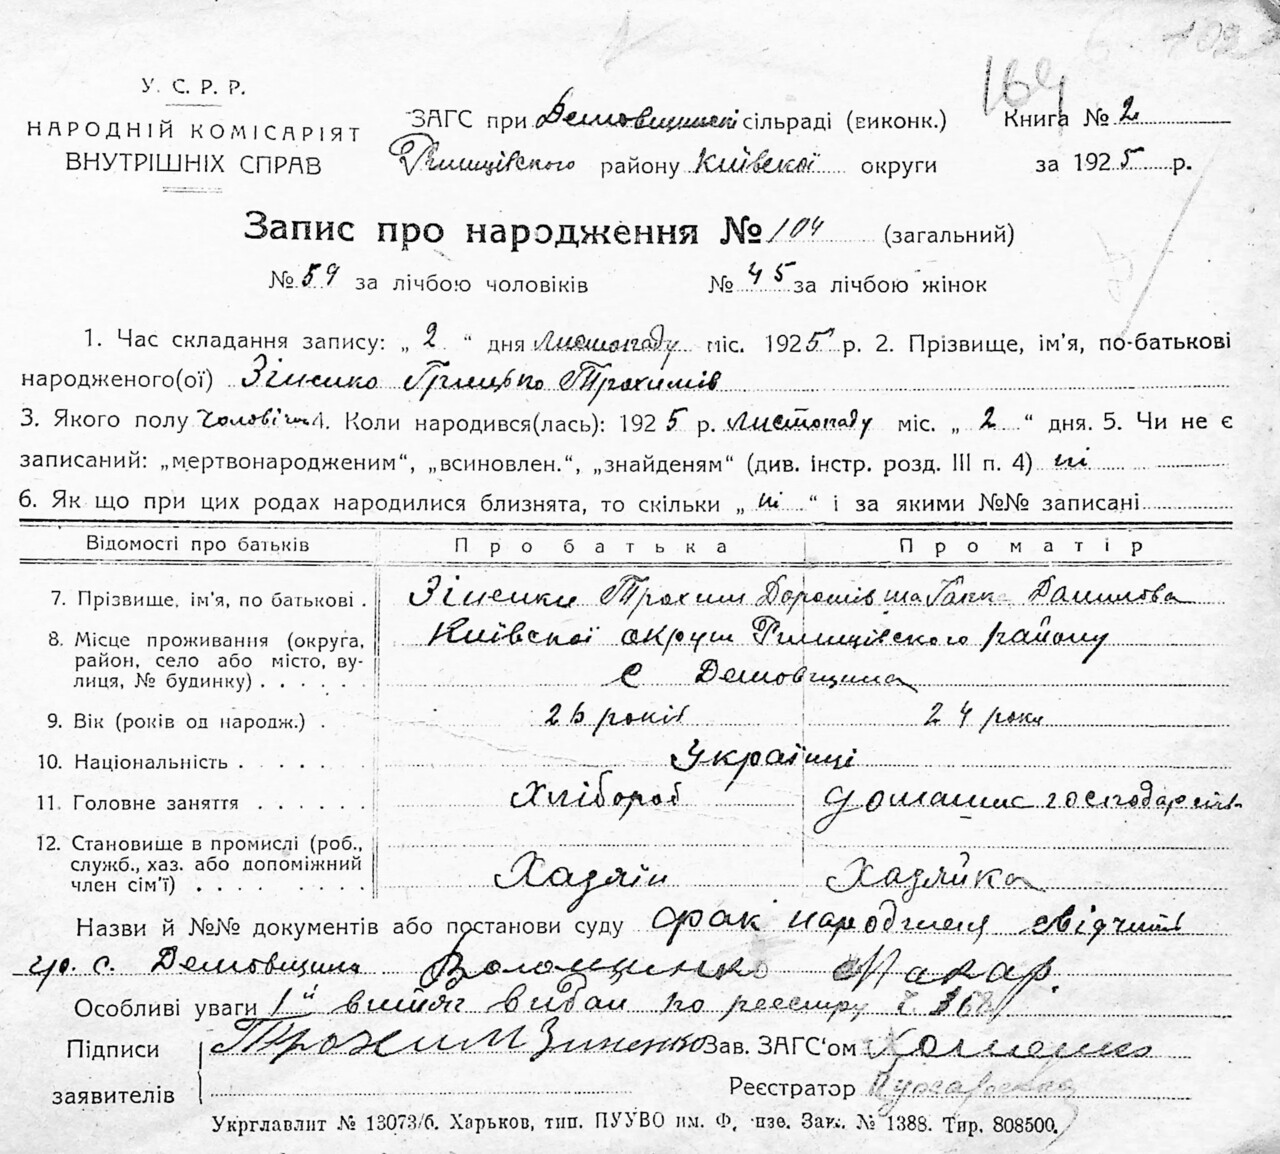 У. С. Р. Р.
НАРОДНІЙ КОМІСАРІЯТ
ВНУТРІШНІХ СПРАВ
164
ЗАГС при Демовщинскі сільраді (виконк.)
Книга № 2
Ржищівского району Київскої округи
за 1925 р.
Запис про народження № 104 (загальний)
№ 59 за лічбою чоловіків № 45 за лічбою жінок
1. Час складання запису: „ 2 “ дня листопаду міс. 1925 р. 2. Прізвище, ім’я, по-батькові
народженого(ої) Зіненко Грицько Трохимів
3. Якого полу чоловіч. 4. Коли народився(лась): 1925 р. листопаду міс. „ 2 “ дня. 5. Чи не є
записаний: „мертвонародженим“, „всиновлен.“, „знайденям“ (див. інстр. розд. III п. 4) ні
6. Як що при цих родах народилися близнята, то скільки „ ні “ і за якими №№ записані
Відомості про батьків Про батька Про матір
7. Прізвище, ім’я, по батькові . Зіненки Трохим Дорошів та Ганка Данилова
8. Місце проживання (округа, район, село або місто, вулиця, № будинку) . . . . . . Київскої округи Ржищівского району
с Демовщина
9. Вік (років од народж.) . 26 років 24 роки
10. Національність . . . . . Українці
11. Головне заняття . . . . . . Хлібороб домашнє господарство
12. Становище в промислі (роб.,
служб., хаз. або допоміжний
член сім’ї) . . . . . . . . . Хазяїн Хазяйка
Назви й №№ документів або постанови суду факт народження свідчить
гр. с. Демовщина Волощенко Макар.
Особливі уваги 1й витяг видан по реєстру ч. 368
Підписи
заявителів
Трохим Зиненко
Зав. ЗАГС‘ом Хоменко
Реєстратор
Укрглавлит № 13073/б. Харьков, тип. ПУУВО им. Ф. Зак. № 1388. Тир. 808500.